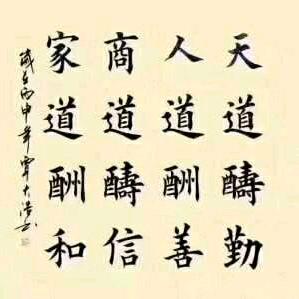 天道酬勤
人道酬善
商道酬信
家道酬和
岁在丙申年覃大浩书